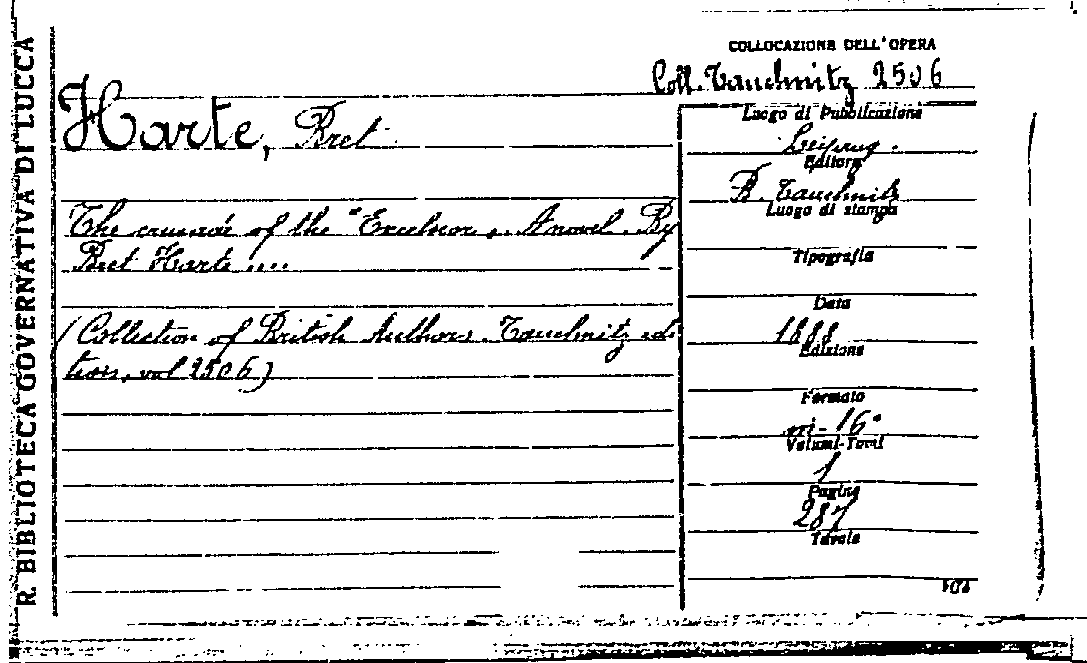 R. BIBLIOTECA GOVERNATIVA DI LUCCA
COLLOCAZIONE DELL'OPERA
Coll. Tauchnitz 2506
Harte, Bret
The crusade of the "Excelsior„. A novel. By
Bret Harte ....
(Collection of British Authors. Tauchnitz edi
tion, vol 2506)
Luogo di Pubblicazione
Leipzig.
Editore
B. Tauchnitz
Luogo di stampa
Tipografia
Data
1888
Edizione
Formato
in-16°
Volumi-Tomi
1
Pagine
287
Tavole